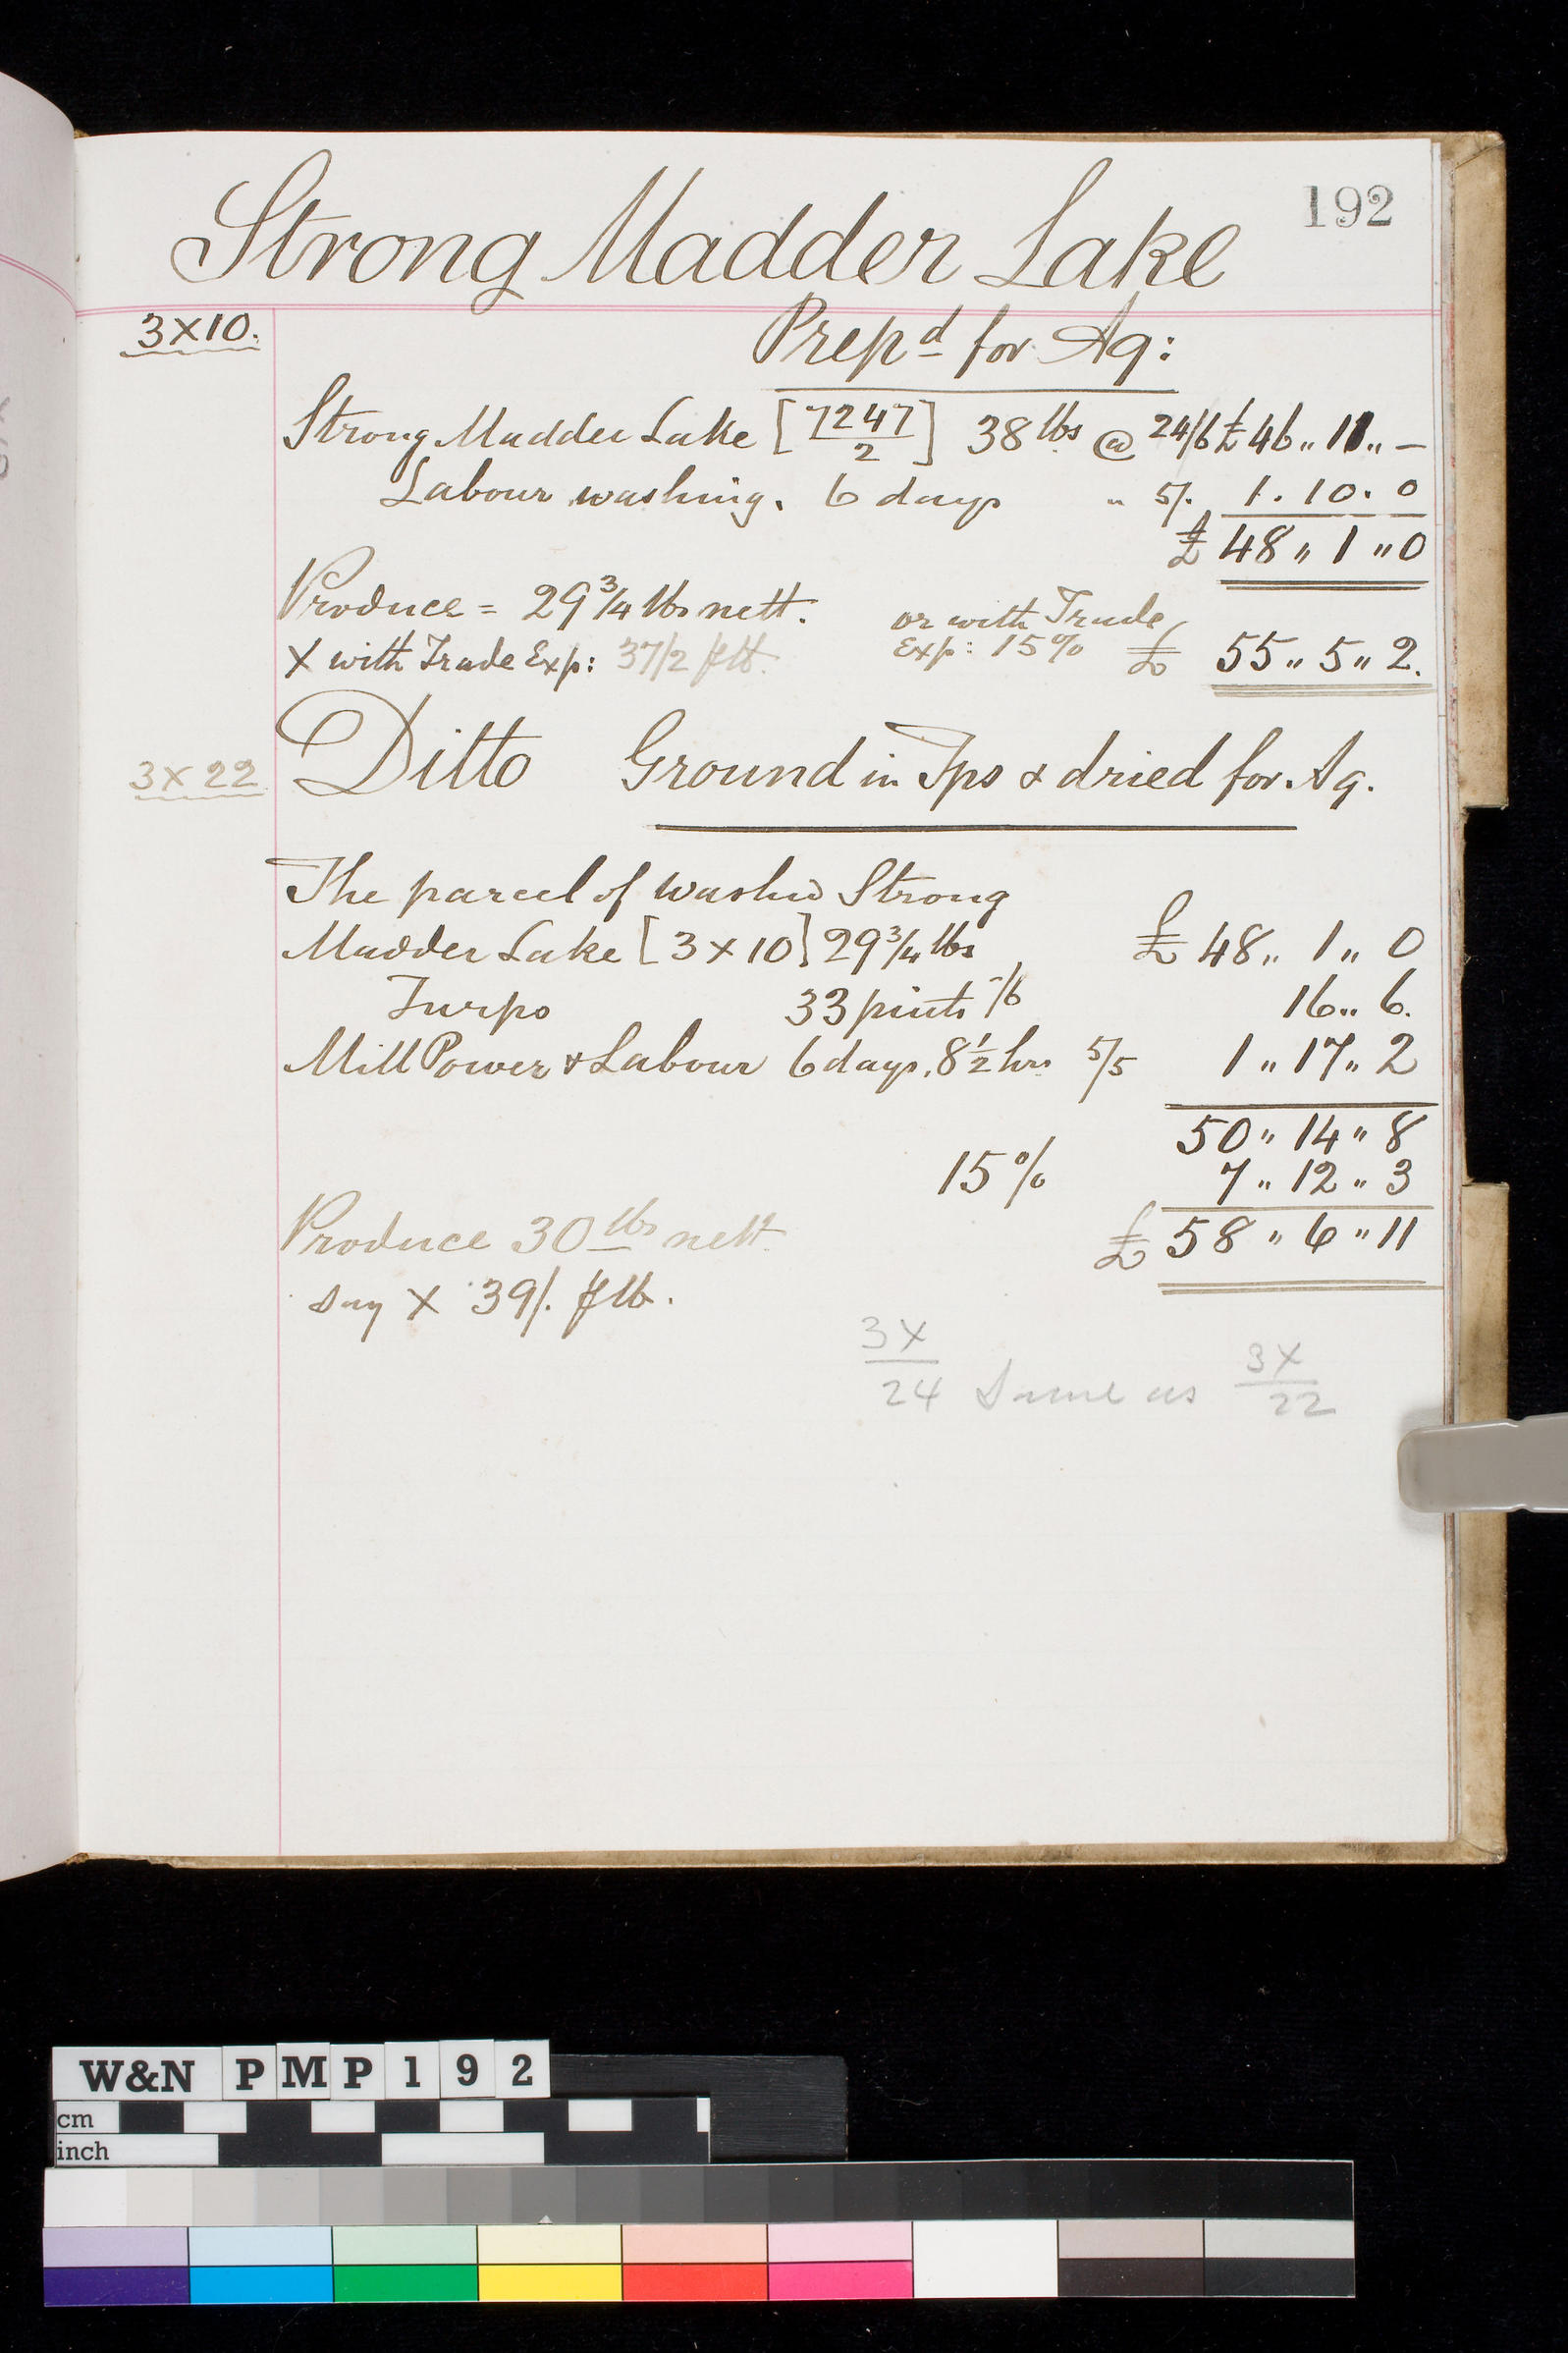 192
Strong Madder Lake
3X10.
Prepd for Aq:
Strong Madder Lake [7247/2] 38 lbs @ 24/6 £46,, 11,, —
Labour washing. 6 days " 5/. 1. 10. 0
£ 48 ,, 1 ,, 0
Produce = 29 3/4 lbs nett.
or with Trade
Exp: 15% £ 55 ,, 5 ,, 2.
X with Trade Exp: 37/2 P lb.
3X22
Ditto Ground in Tps & dried for Aq.
The parcel of washed Strong
Madder Lake [3X10] 29 3/4 lbs £ 48 ,, 1 ,, 0
Turps 33 pints -/6 16 ,, 6.
Mill Power & Labour 6 days. 8 1/2 hrs 5/5 1 ,, 17 ,, 2
50 ,, 14 ,, 8
15% 7 ,, 12 ,, 3
Produce 30 lbs nett £ 58 ,, 6 ,, 11
say X 39/. P lb.
3X/24 Same as 3X/22
W&N PMP192
cm
inch